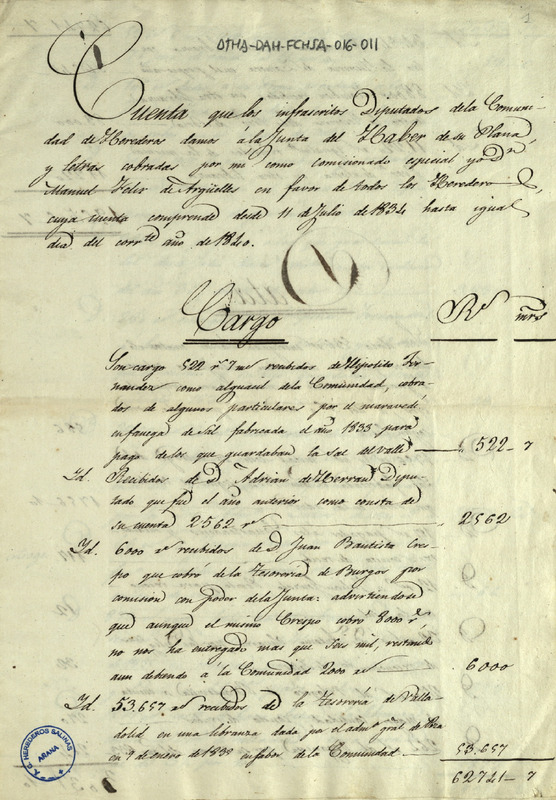 DTHA-DAH-FCHSA-016-011
1
Cuenta que los infrascritos Diputados de la Comuni-
dad de Herederos damos á la Junta del Haber de su Plana,
y letras cobradas por mi como comisionado especial yo Dn
Manuel Felix de Argüelles en favor de todos los Herederos,
cuya cuenta comprende desde 11 de Julio de 1834 hasta igual
dia del corrte año de 1840.
Cargo
Rs mrs
Son cargo 522 rs 7 ms recibidos de Hipolito Fer-
nandez como alguacil de la Comunidad, cobra-
dos de algunos particulares por el maravedí
en fanega de Sal fabricada el año 1833 para
pago de los que guardaban la sal del valle 522 - 7
Id. Recibidos de D. Adrian de Herran Dipu-
tado que fué el año anterior como consta de
su cuenta 2562 rs 2562
Id. 6000 rs recibidos de D. Juan Bautista Cres-
po que cobró de la tesoreria de Burgos por
comision con poder de la Junta: advirtiendose
que aunque el mismo Crespo cobró 8000 rs,
no nos ha entregado mas que seis mil, restando
aun debiendo á la Comunidad 2000 rs 6000
Id. 53.657 rs recibidos de la tesoreria de Valla-
dolid en una libranza dada por el admor gral de
en 9 de enero de 1839 en fabor de la Comunidad 53.657
62741 - 7
A. C. HEREDEROS SALINAS
AÑANA